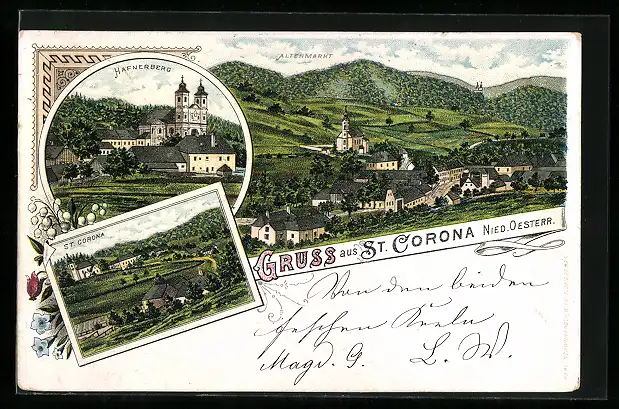 ALTENMARKT
HAFNERBERG
ST. CORONA
GRUSS AUS ST. CORONA NIED. OESTERR.
Von den beiden
feschen Kerln
Magd. G. L. W.